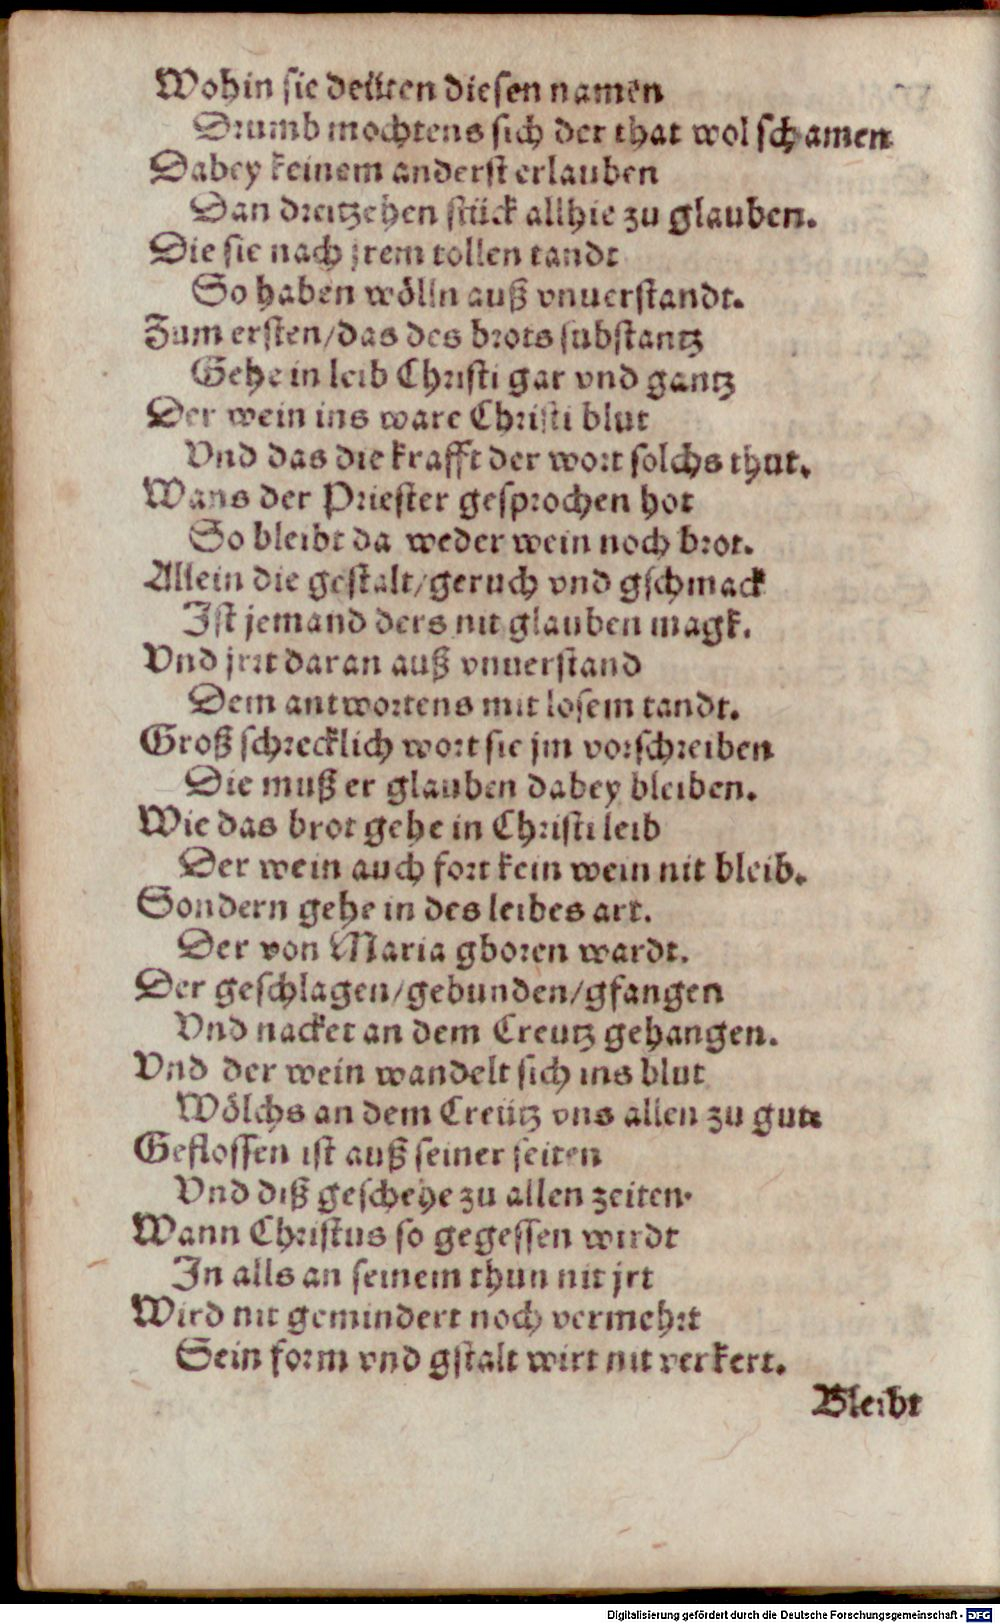 Wohin sie deüten diesen namen
Drumb mochtens sich der that wol schamen
Dabey keinem anderst erlauben
Dan dreitzehen stück allhie zu glauben.
Die sie nach jrem tollen tandt
So haben wölln auß vnuerstandt.
Zum ersten/das des brots substantz
Gehe in leib Christi gar vnd gantz
Der wein ins ware Christi blut
Vnd das die krafft der wort solchs thut.
Wans der Priester gesprochen hot
So bleibt da weder wein noch brot.
Allein die gestalt/geruch vnd gschmack
Ist jemand ders nit glauben magk.
Vnd jrrt daran auß vnuerstand
Dem antwortens mit losem tandt.
Groß schrecklich wort sie jm vorschreiben
Die muß er glauben dabey bleiben.
Wie das brot gehe in Christi leib
Der wein auch fort kein wein nit bleib.
Sondern gehe in des leibes art.
Der von Maria gboren wardt.
Der geschlagen/gebunden/gfangen
Vnd nacket an dem Creutz gehangen.
Vnd der wein wandelt sich ins blut
Wölchs an dem Creütz vns allen zu gut
Geflossen ist auß seiner seiten
Vnd diß geschehe zu allen zeiten.
Wann Christus so gegessen wirdt
In alls an seinem thun nit jrt
Wird nit gemindert noch vermehrt
Sein form vnd gstalt wirt nit verkert.
Bleibt
Digitalisierung gefördert durch die Deutsche Forschungsgemeinschaft - DFG